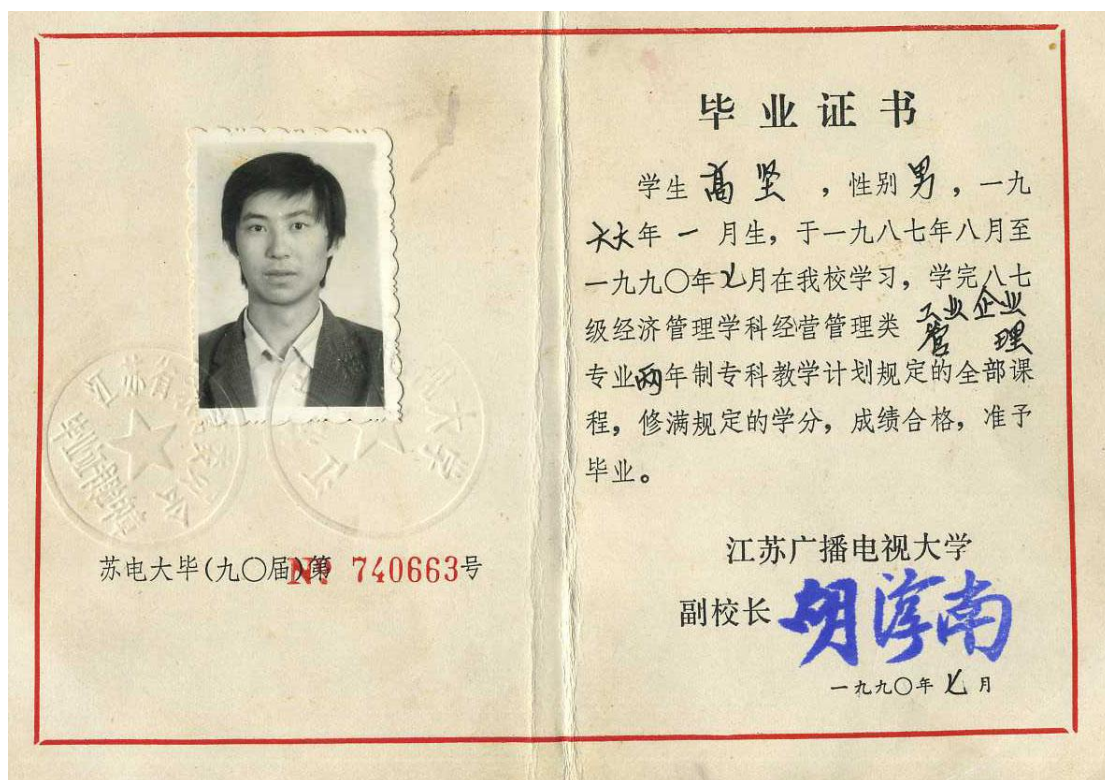 苏电大毕(九〇届)第 № 740663号
毕业证书
学生 高坚 ,性别 男 ,一九
六六年 一 月生,于一九八七年八月至
一九九〇年七月在我校学习,学完八七
级经济管理学科经营管理类 工业企业
管理
专业两年制专科教学计划规定的全部课
程,修满规定的学分,成绩合格,准予
毕业。
江苏广播电视大学
副校长 胡淳南
一九九〇年 七 月